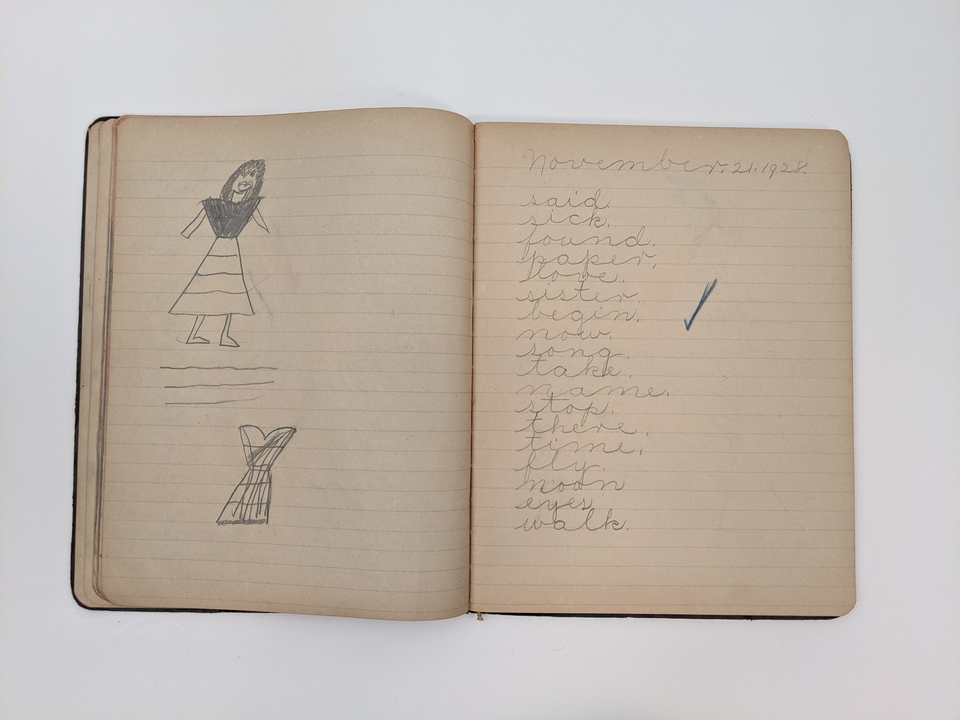 November. 21. 1928.
said.
sick.
found.
paper.
love.
sister.
begin.
now.
song.
take.
name.
stop.
there.
time.
fly.
moon
eyes
walk.